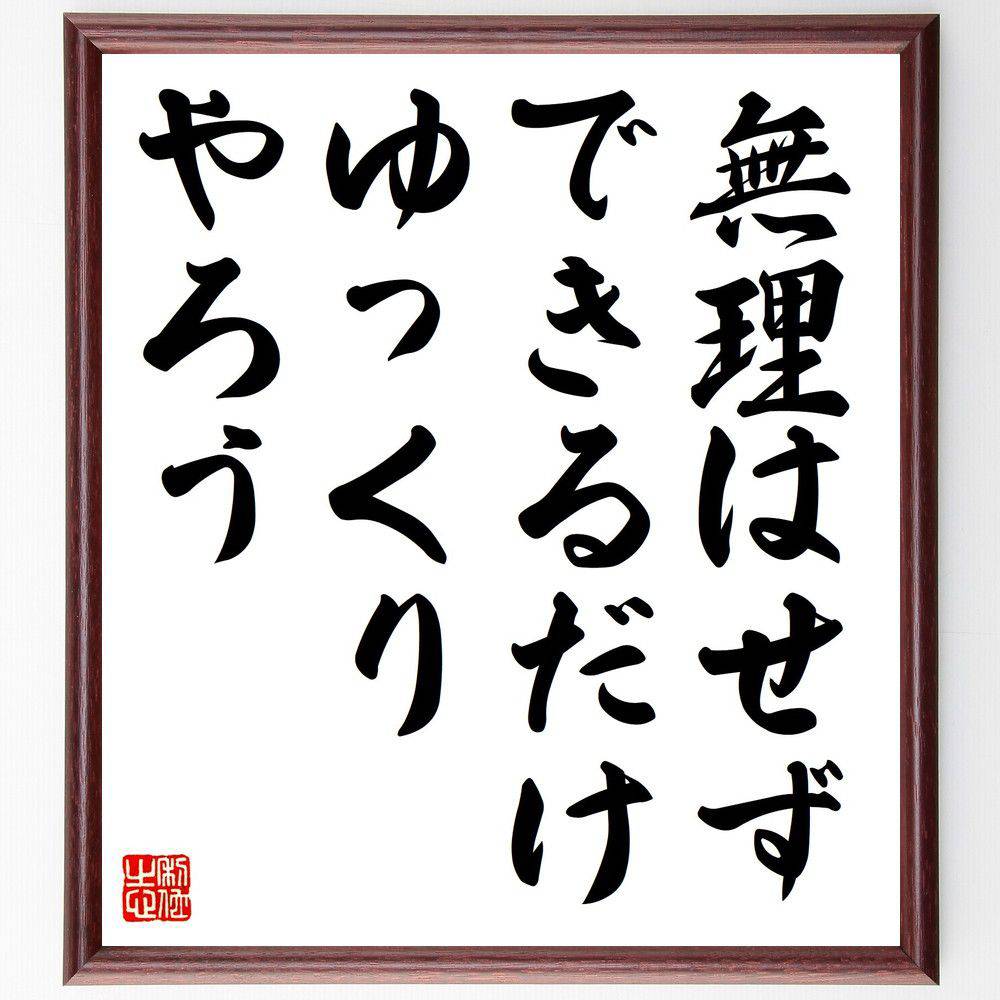 無理はせず
できるだけ
ゆっくり
やろう